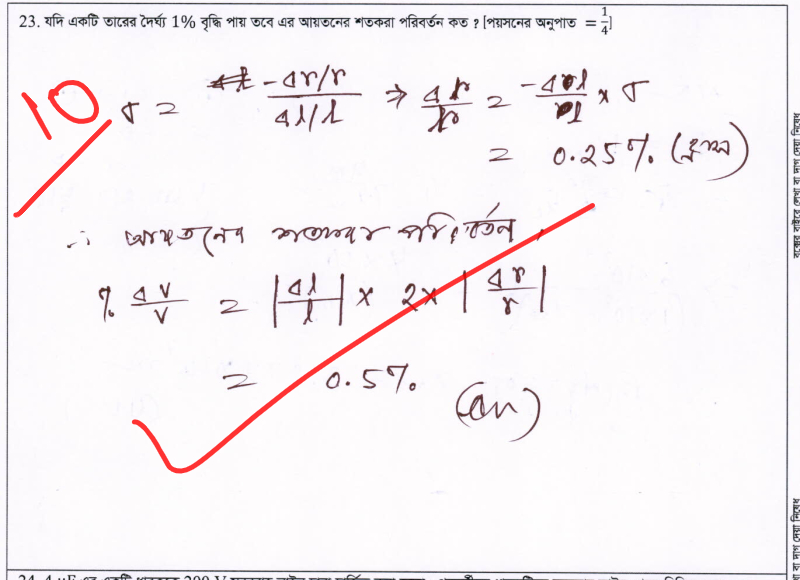 23. যদি একটি তারের দৈর্ঘ্য 1% বৃদ্ধি পায় তবে এর আয়তনের শতকরা পরিবর্তন কত ? [পয়সনের অনুপাত = 1/4]
10
σ = -Δr/r / Δl/l ⇒ Δr/r = -Δl/l × σ
= 0.25% (হ্রাস)
∴ আয়তনের শতকরা পরিবর্তন,
% ΔV/V = |Δl/l| × 2 × |Δr/r|
= 0.5%
(Ans)
বক্সের বাইরে লেখা বা দাগ দেয়া নিষেধ
বা দাগ দেয়া নিষেধ